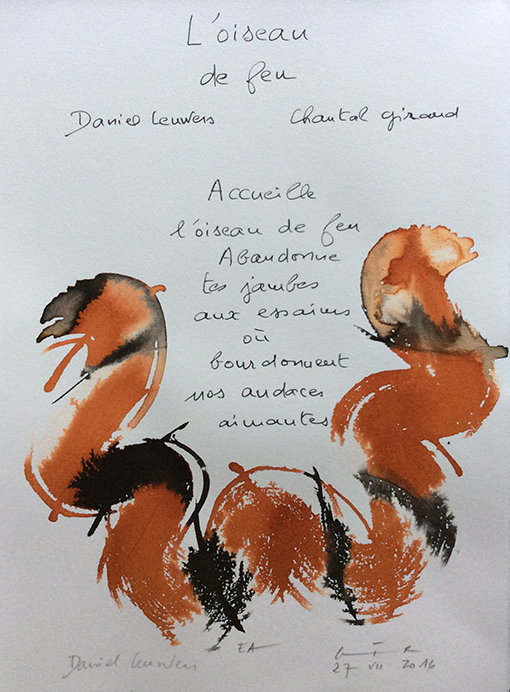 L'oiseau
de feu
Daniel Leuwers Chantal Giraud
Accueille
l'oiseau de feu
Abandonne
tes jambes
aux essaims
où
bourdonnent
nos audaces
aimantes
Daniel Leuwers EA
27 VII 2016